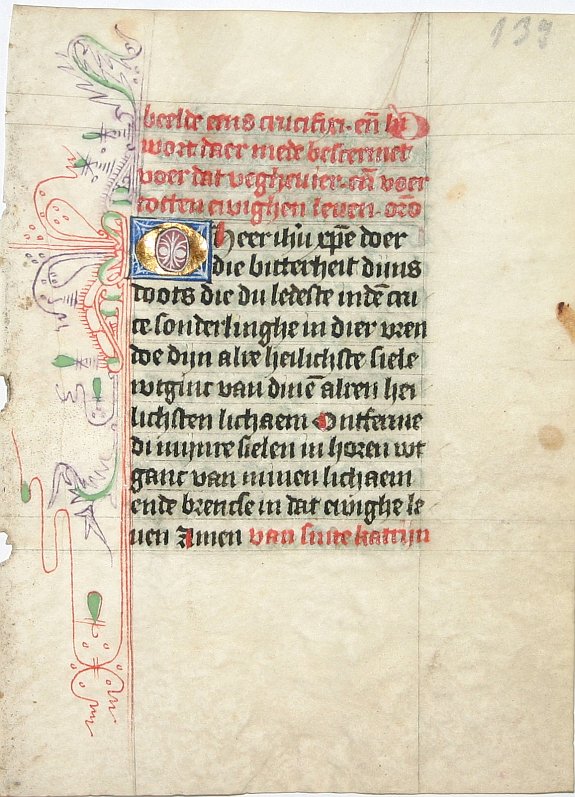 133
beelde eens crucifixi. eñ hi
wort daer mede bescermet
voer dat veghevier. eñ voer
totten ewighen leven. orō
O heer ihū xp̄e doer
die bitterheit dijns
doots die du ledeste indē cru
ce sonderlinghe in dier vren
doe dijn alre heilichste siele
wtginc van dinē alren hei
lichsten lichaem Ontferme
di mijnre sielen in horen wt
ganc van minen lichaem
ende brencse in dat ewighe le
uen Amen van sinte katrijn